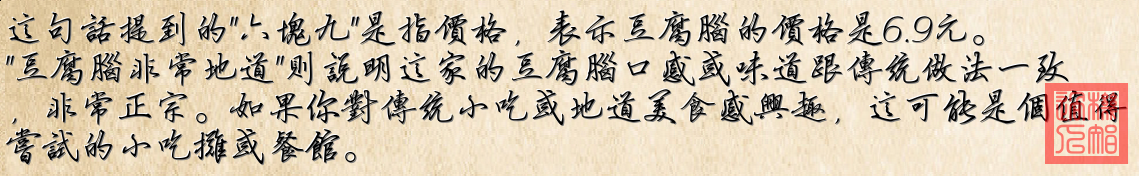 這句話提到的"六塊九"是指價格，表示豆腐腦的價格是6.9元。
"豆腐腦非常地道"則說明這家的豆腐腦口感或味道跟傳統做法一致
，非常正宗。如果你對傳統小吃或地道美食感興趣，這可能是個值得
嘗試的小吃攤或餐館。